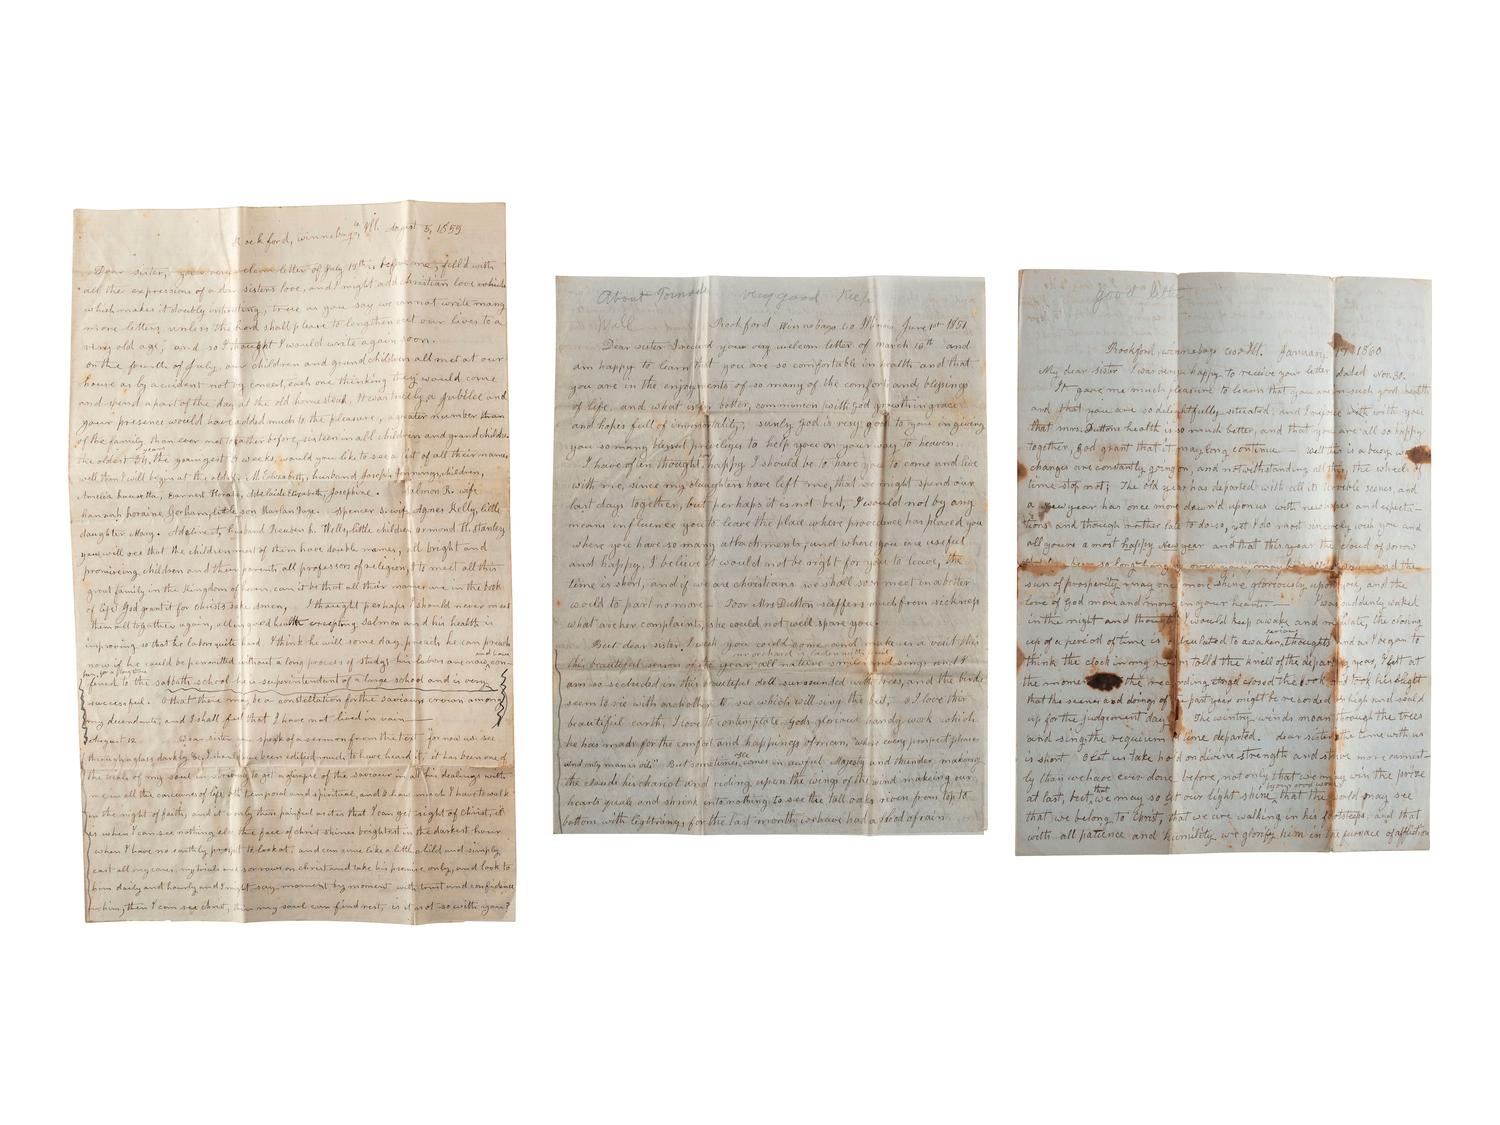 Rockford, Winnebago, Co Ill. August 5, 1859
Dear sister, your very welcom letter of July 15th is before me, fill'd with
all the expressions of a dear sisters love, and I might add christian love
which makes it doubly interesting, true as you say we cannot write many
more letters, unless the Lord shall please to lengthen out our lives to a
very old age, and so I thought I would write again soon.
on the fourth of July, our children and grand children all met at our
house as by accident not by concert, each one thinking they would come
and spend a part of the day at the old homestead. It was truely a Jubilee and
your presence would have added much to the pleasure, a greater number than
of the family than ever met together before, sixteen in all children and grandchildren
the oldest years, the youngest 3 weeks, would you like to see a list of all their names
well then I will begin at the oldest, M. Elizabeth, husband Joseph Jennings, children,
Amelia Earnest Horatio, Adelaide Elizabeth, Josephine. Salmon R. wife
Hannah Loraine Gorham, little son Harlan Page. Spencer S. wife Agnes Kelly, little
daughter Mary. Adeline R, husband Reuben h. Wells, little children Ormond H. Stanley
you will see that the children most of them have double names, all bright and
promiseing children and their parents all professors of religeon, to meet all this
great family, in the Kingdom of heaven, can it be that all their names are in the book
of life God grant it for christs sake Amen, I thought perhaps I should never meet
them all together again, all in good health excepting Salmon and his health is
improveing so that he labors quite hard. I think he will some day preach he can preach
now if he could be permitted without a long process of study, his labors are now con-
fined to the sabbath school as a superintendent of a large school and is very
successful. O that there may be a constellation for the saviours crown among
my decendants, and I shall feel that I have not lived in vain
August 12 Dear sister you speak of a sermon from the text "for now we see
through a glass darkly &c, I should have been edified much to have heard it, it has been one of
the trials of my soul in striving to get a glimpse of the saviour in all his dealings with
me in all the concerns of life both temporal and spiritual, and O how much I have to walk
in the night of faith, and it only then painful as it is that I can get sight of Christ, it
is when I can see nothing else, the face of christ shines brightest in the darkest hour
when I have no earthly prospect to look at, and can come like a little child and simply
cast all my cares, my trials and sorrows on christ and take his promise only, and look to
him daily and hourly and I might say moment by moment with trust and confidence
in him, then I can see christ, then my soul can find rest, is it not so with you?
About Tornado very good Keep
Well
Rockford Winnebago, co Illinois June 1st 1851
Dear sister I received your very welcom letter of March 16th and
am happy to learn that you are so comfortable in health and that
you are in the enjoyments of so many of the comforts and blessings
of life, and what is far better, communion with God growth in grace
and hopes full of immortality, surely God is very good to you in giving
you so many blessed privileges to help you on your way to heaven.
I have often thought how happy I should be to have you to come and live
with me, since my daughters have left me, that we might spend our
last days together, but perhaps it is not best, I would not by any
means influence you to leave the place where providence has placed you
where you have so many attachments, and where you are useful
and happy, I believe it would not be right for you to leave, the
time is short, and if we are christians we shall soon meet in a better
world to part no more — Poor Mrs Dutton suffers much from sickness
what are her complaints, she could not well spare you.
But dear sister I wish you could come and make us a visit this
our orchard is laden with
this beautiful season of the year, all nature smiles and sings and I
am so secluded in this beautiful dell surrounded with trees, and the birds
seem to vie with each other to see which will sing the best, O I love this
beautiful earth, I love to contemplate Gods glorious handy work which
he has made for the comfort and happiness of man, "where every prospect pleases
and only man is vile" But sometimes comes in awful Majesty and thunder, making
the clouds his chariot and riding upon the wings of the wind makeing our
hearts quail and shrink into nothing, to see the tall oaks riven from top to
bottom with lightning, for the last month we have had a flood of rain.
good letter
Rockford, Winnebago co Ill. January 1860
My dear sister I was very happy to receive your letter dated Nov. 30.
It gave me much pleasure to learn that you are in such good health
and that you are so delightfully situated, and I rejoice with you
that Mrs. Duttons health is so much better, and that you are all so happy
together, God grant that it may long continue Well this is a busy
changes are constantly going on, and notwithstanding all this, the wheels of
time stop not; The old year has departed with all its terrible scenes, and
a new year has once more dawn'd upon us with new hopes and expecta-
tions and though rather late to do so, yet I do most sincerely wish you and
all yours a most happy new year and that this year the cloud of sorrow
sun of prosperity may one more shine gloriously upon you, and the
love of God more and more in your hearts. — I was suddenly waked
in the night and thought I would keep awake and the closing
up of a period of time is calculated to awaken serious thoughts and as I began to
think the clock in my room told the knell of the departing year, I felt at
the moment the recording angel closed the book and took his flight
that the scenes and doings of the past year might be recorded on high and seald
up for the judgement day The wintry winds moan through the trees
and sing the requiem time departed. dear sister the time with us
is short O let us take hold on divine strength and strive more earnest-
ly than we have ever done before, not only that we may win the prize
at last, but that we may so let our light shine, by our good works that the world may see
that we belong to Christ, that we are walking in his footsteps, and that
with all patience and humility we glorify him in the furnace of affliction